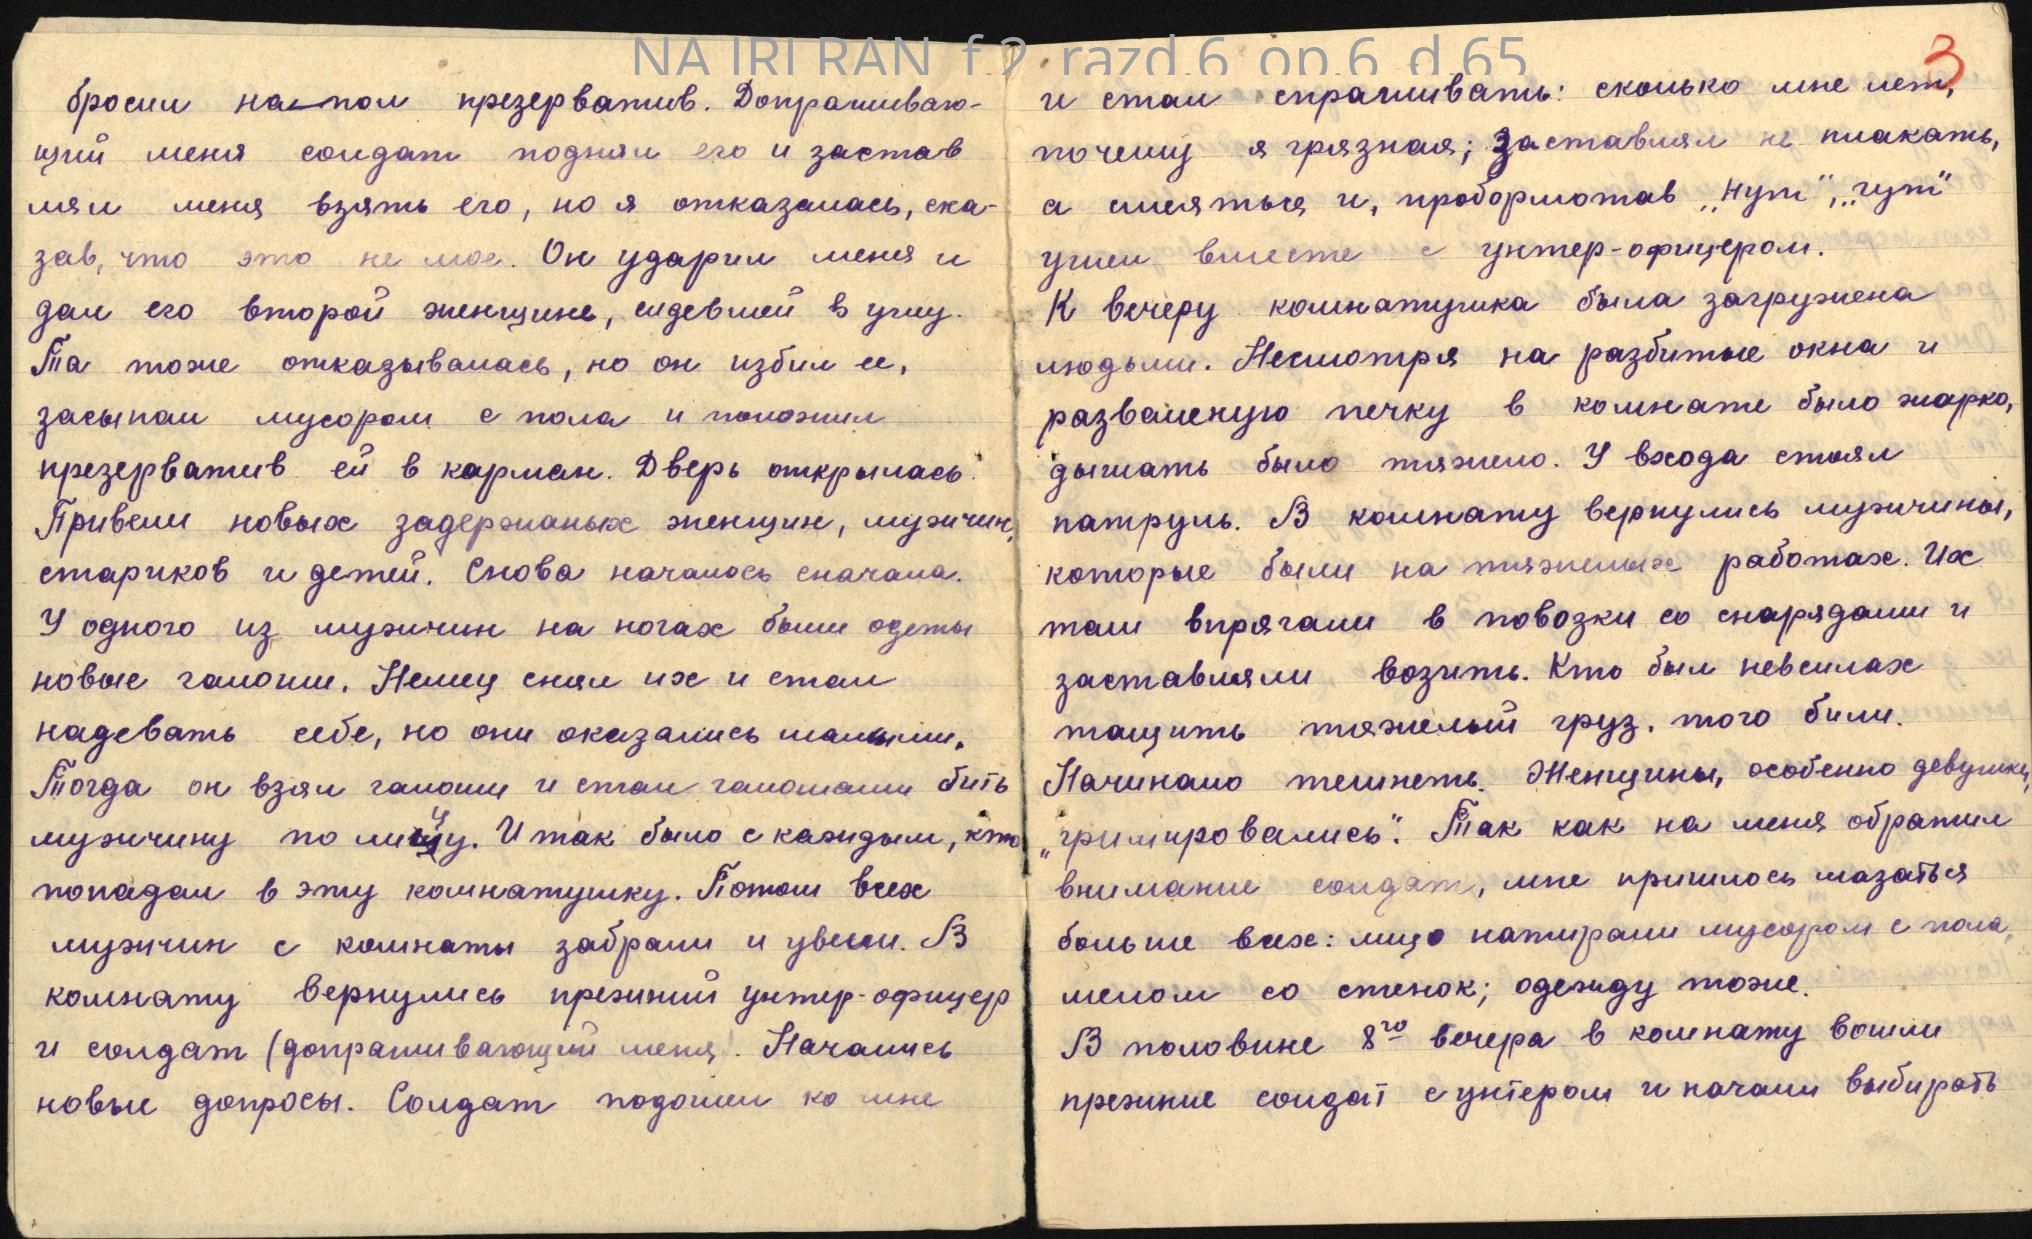 NA IRI RAN f.2 razd.6 op.6 d.65
бросил на пол презерватив. Допрашиваю-
щий меня солдат поднял его и застав
лял меня взять его, но я отказалась, ска-
зав, что это не мое. Он ударил меня и
дал его второй женщине, сидевшей в углу.
Та тоже отказывалась, но он избил ее,
засыпал мусором с пола и положил
презерватив ей в карман. Дверь открылась.
Привели новых задержаных женщин, мужчин,
стариков и детей. Снова началось сначала.
У одного из мужчин на ногах были одеты
новые галоши. Немец снял их и стал
надевать себе, но они оказались малыми.
Тогда он взял галоши и стал галошами бить
мужчину по лицу. И так было с каждым, кто
попадал в эту комнатушку. Потом всех
мужчин с комнаты забрали и увели. В
комнату вернулись прежний унтер-офицер
и солдат (допрашивающий меня). Начались
новые допросы. Солдат подошел ко мне
3
и стал спрашивать: сколько мне лет,
почему я грязная; заставлял не плакать,
а смеяться и, пробормотав „нут", „гут"
ушел вместе с унтер-офицером.
К вечеру комнатушка была загружена
людьми. Несмотря на разбитые окна и
разваленую печку в комнате было жарко,
дышать было тяжело. У входа стоял
патруль. В комнату вернулись мужчины,
которые были на тяжелых работах. Их
там впрягали в повозки со снарядами и
заставляли возить. Кто был невсилах
тащить тяжелый груз, того били.
Начинало темнеть. Женщины, особенно девушки,
„гримировались". Так как на меня обратил
внимание солдат, мне пришлось мазаться
больше всех: лицо натирали мусором с пола,
мелом со стенок; одежду тоже.
В половине 8го вечера в комнату вошли
прежние солдат с унтером и начали выбирать